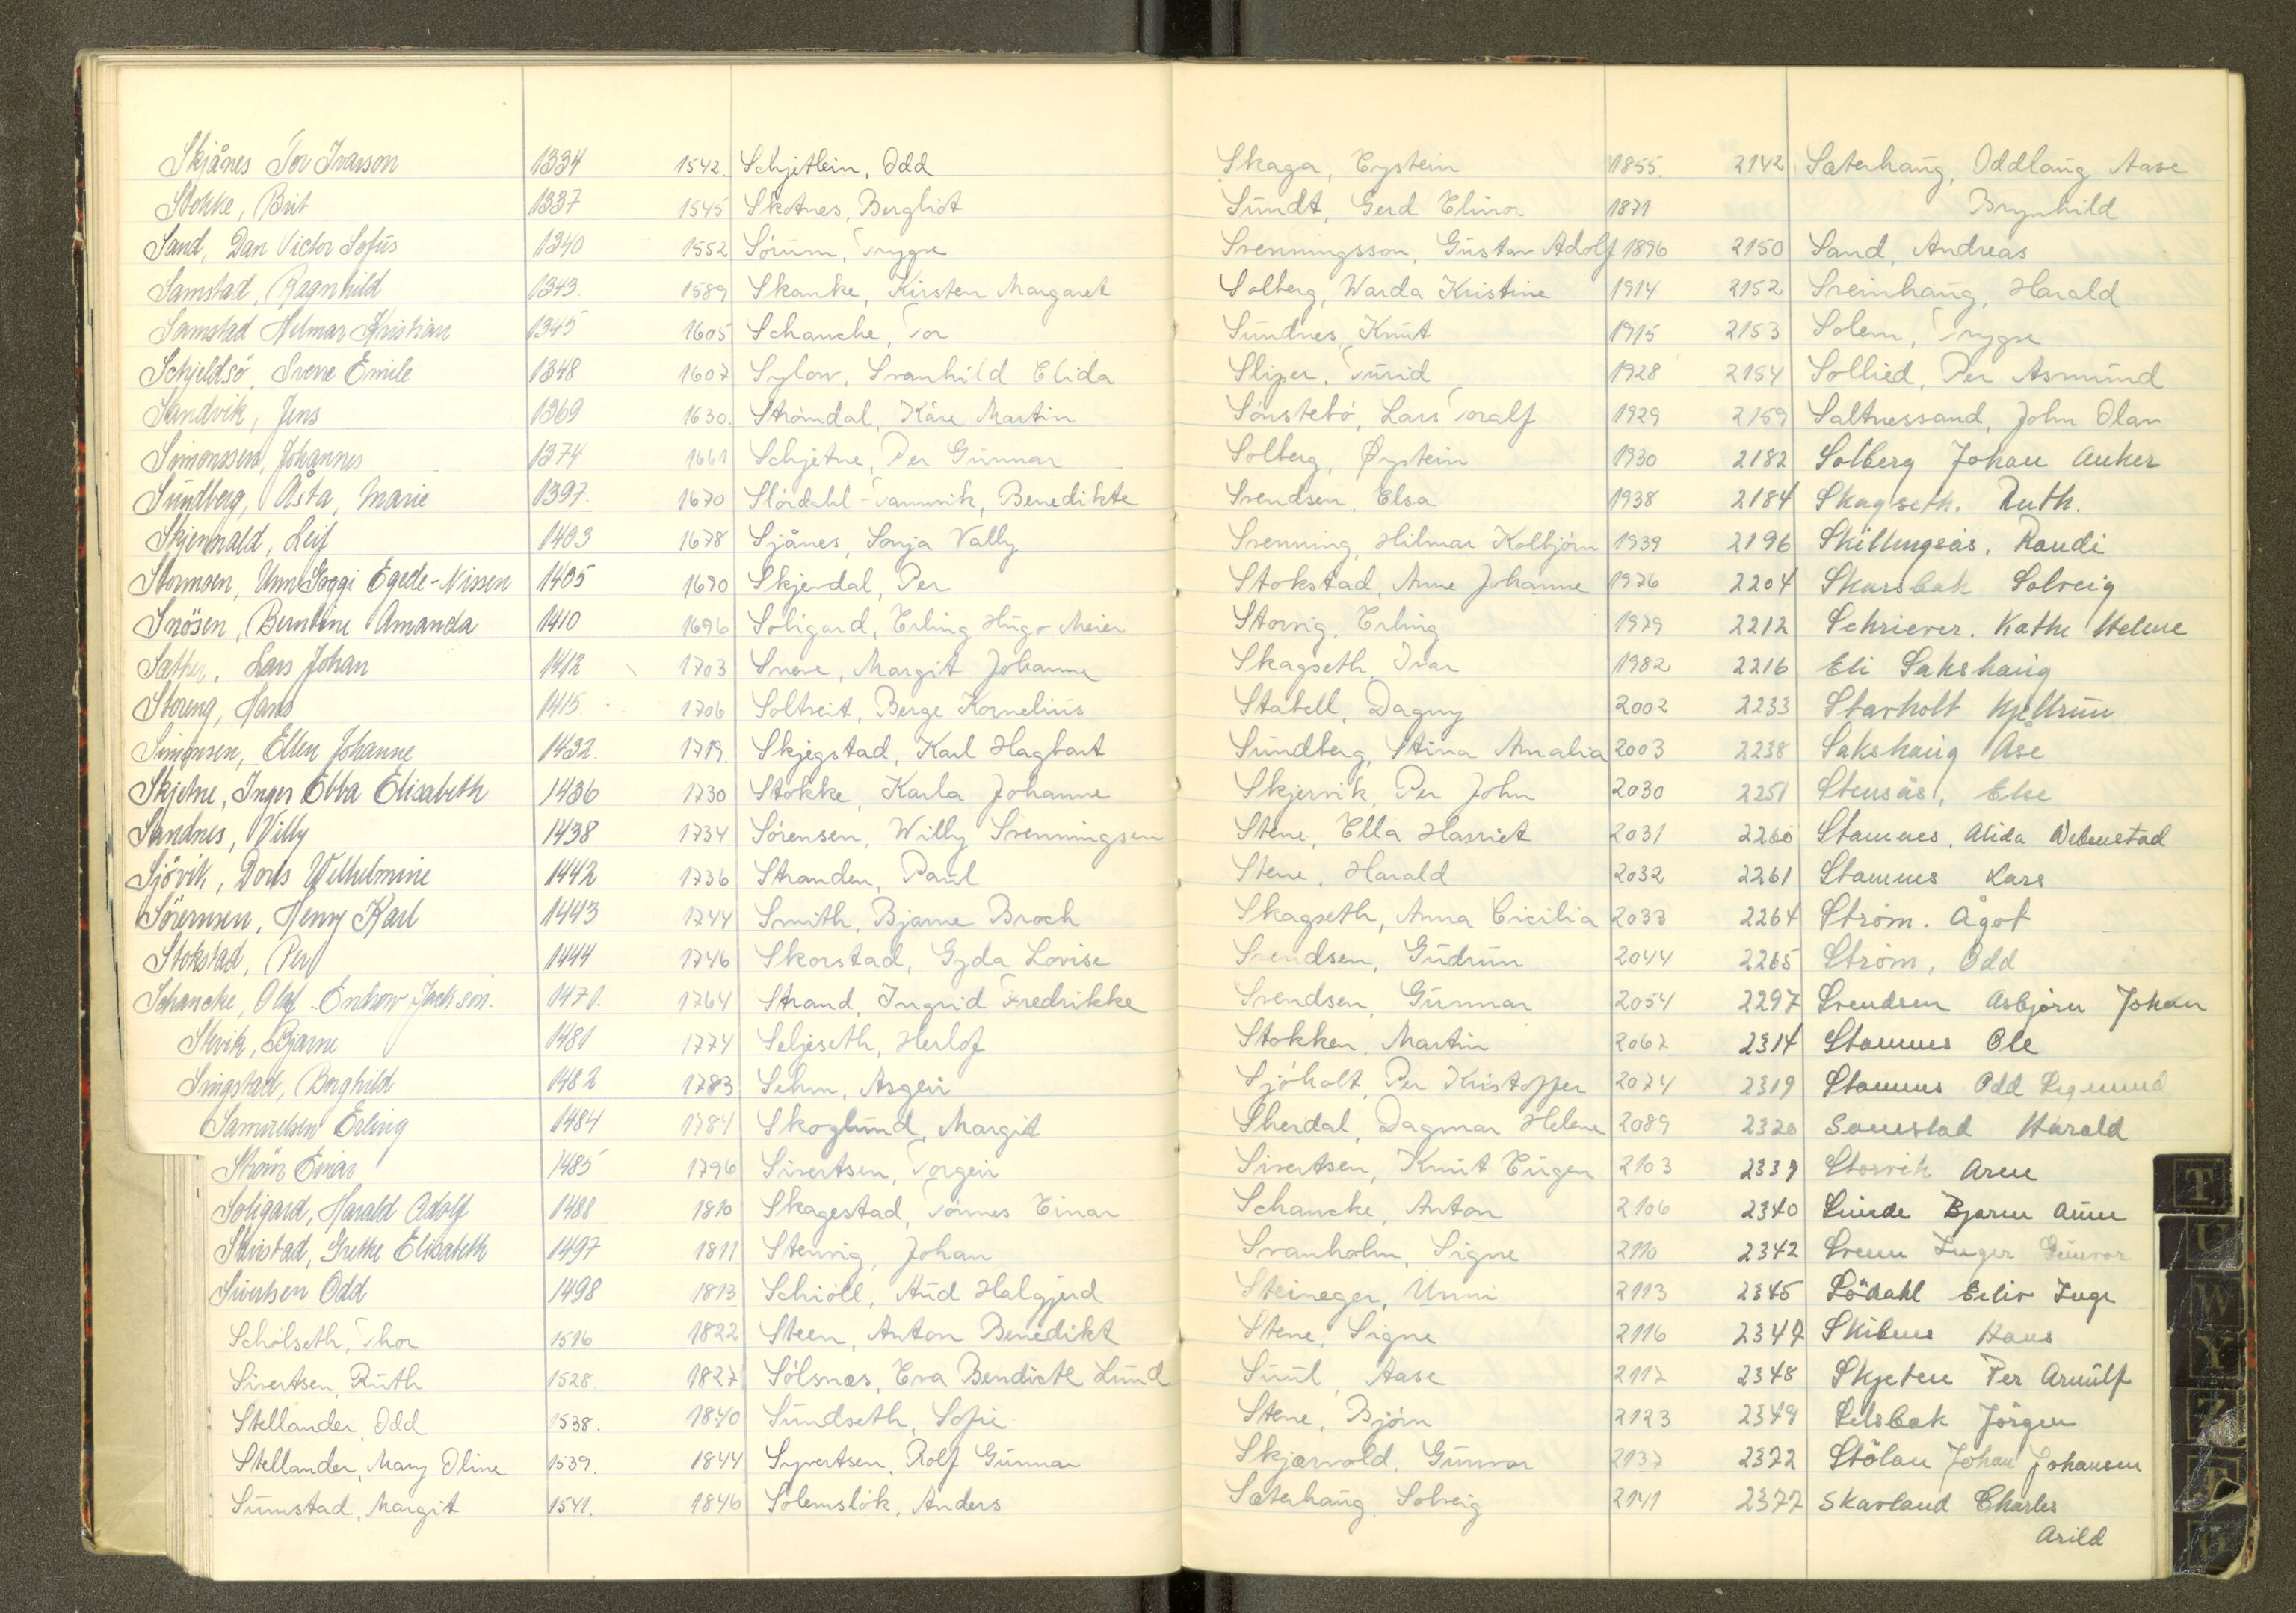 Skjånes Tor Ivarson 1334
Stokke, Brit 1337
Sand, Dan Victor Sofus 1340
Samstad, Ragnhild 1343.
Samstad Hilmar Kristian 1345
Schjeldsö, Svene Emile 1348
Sandvik, Jens 1369
Simonssen, Johannes 1374
Sundberg, Åsta, Marie 1397.
Skjennald, Leif 1403
Stormoen, Unn Soggi Egede-Nissen 1405
Snösen, Berntine Amanda 1410
Sæther, Lars Johan 1412
Storeng, Hans 1415
Simonsen, Ellen Johanne 1432.
Skjetne, Inger Ebba Elisabeth 1436
Sandnes, Villy 1438
Sjövik, Doris Wilhelmine 1442
Sörensen, Henry Karl 1443
Stokstad, Per 1444
Schancke, Olaf Endrow Jackson. 1471.
Skvik, Bjarne 1481
Singstad, Borghild 1482
Samuelsen Erling 1484
Ström Einar 1485
Soligard, Harald Adolf 1488
Grethe Elisabeth 1497
Sivertsen Odd 1498
Schölseth, Thor 1516
Sivertsen, Ruth 1528.
Stellander, Odd 1538.
Stellander, Mary Oline 1539.
Sumstad, Margit 1541.
1542. Schjetlein, Odd
1545 Skotnes, Bergliot
1552 Sörum, Trygve
1589 Skanke, Kirsten Margaret
1605 Schancke, Tor
1607 Sylow, Svanhild Elida
1630. Strömdal, Kåre Martin
1661 Schjetne, Per Gunnar
1670 Slördahl-Tamnvik, Benedikte
1678 Sjånes, Sonja Vally
1690 Skjerdal, Per
1696 Soligard, Erling Hugo Meier
1703 Sneve, Margit Johanne
1706 Soltveit, Berge Kornelius
1719. Skjegstad, Karl Hagbart
1730 Stokke, Karla Johanne
1734 Sörensen, Willy Svenningsen
1736 Stranden, Paul
1744 Smith, Bjarne Broch
1746 Skorstad, Gyda Lovise
1764 Strand, Ingrid Fredrikke
1774 Seljeseth, Herlof
1783 Sehm, Asgeir
1784 Skoglund, Margit
1796 Sivertsen, Torgeir
1810 Skagestad, Tönnes Einar
1811 Stenvig, Johan
1813 Schiöll, Aud Halgjerd
1822 Steen, Anton Benedikt
1827 Sölsnæs, Eva Bendicte Lund
1840 Sundseth, Sofie
1844 Syvertsen, Rolf Gunnar
1846 Solemslök, Anders
Skaga, Eystein 1855.
Sundt, Gerd Elinor 1871
Svenningsson, Gustav Adolf 1896
Solberg, Warda Kristine 1914
Sundnes, Knut 1915
Sliper, Turid 1928
Sönstebö, Lars Toralf 1929
Solberg, Øystein 1930
Svendsen, Elsa 1938
Svenning, Hilmar Kolbjörn 1939
Stokstad, Anne Johanne 1976
Storvig, Erling 1979
Skagseth, Ivar 1982
Stabell, Dagny 2002
Sundberg, Stina Amalia 2003
Skjervik, Per John 2030
Stene, Ella Harriet 2031
Stene, Harald 2032
Skagseth, Anna Cicilia 2033
Svendsen, Gudrun 2044
Svendsen, Gunnar 2054
Stokken, Martin 2067
Sjöholt, Per Kristoffer 2074
Skerdal, Dagmar Helene 2089
Sivertsen, Knut Eugen 2103
Schancke, Anton 2106
Svanholm, Signe 2110
Steineger, Unni 2113
Stene, Signe 2116
Suul, Aase 2117
Stene, Björn 2123
Skjærvold, Gunvor 2137
Sæterhaug, Solveig 2141
2142 Sæterhaug, Oddlaug Aase
Brynhild
2150 Sand, Andreas
2152 Sveinhaug, Harald
2153 Solem, Trygve
2154 Sollied, Per Asmund
2159 Saltnessand, John Olav
2182 Solberg Johan Anker
2184 Skagseth. Ruth.
2196 Skillingsås, Randi
2204 Skarsbak Solveig
2212 Schriever. Kathe Helene
2216 Eli Sakshaug
2233 Starholt Kjellrun
2238 Sakshaug Åse
2251 Stensås, Else
2260 Stamnes, Alida Webenstad
2261 Stamnes Lars
2264 Ström. Ågot
2265 Ström, Odd
2297 Svendsen Asbjörn Johan
2314 Stamnes Ole
2319 Stamnes Odd Sigmund
2320 Samstad Harald
2339 Storvik Arne
2340 Bjarne Arne
2342 Svenn Inger Gunvor
2345 Södahl Eiliv Inge
2347 Skibnes Hans
2348 Skjetne Per Arnulf
2349 Selsbak Jörgen
2372 Stölan Johan Johansen
2377 Skavland Charles
Arild
T
U
W
Y
Z